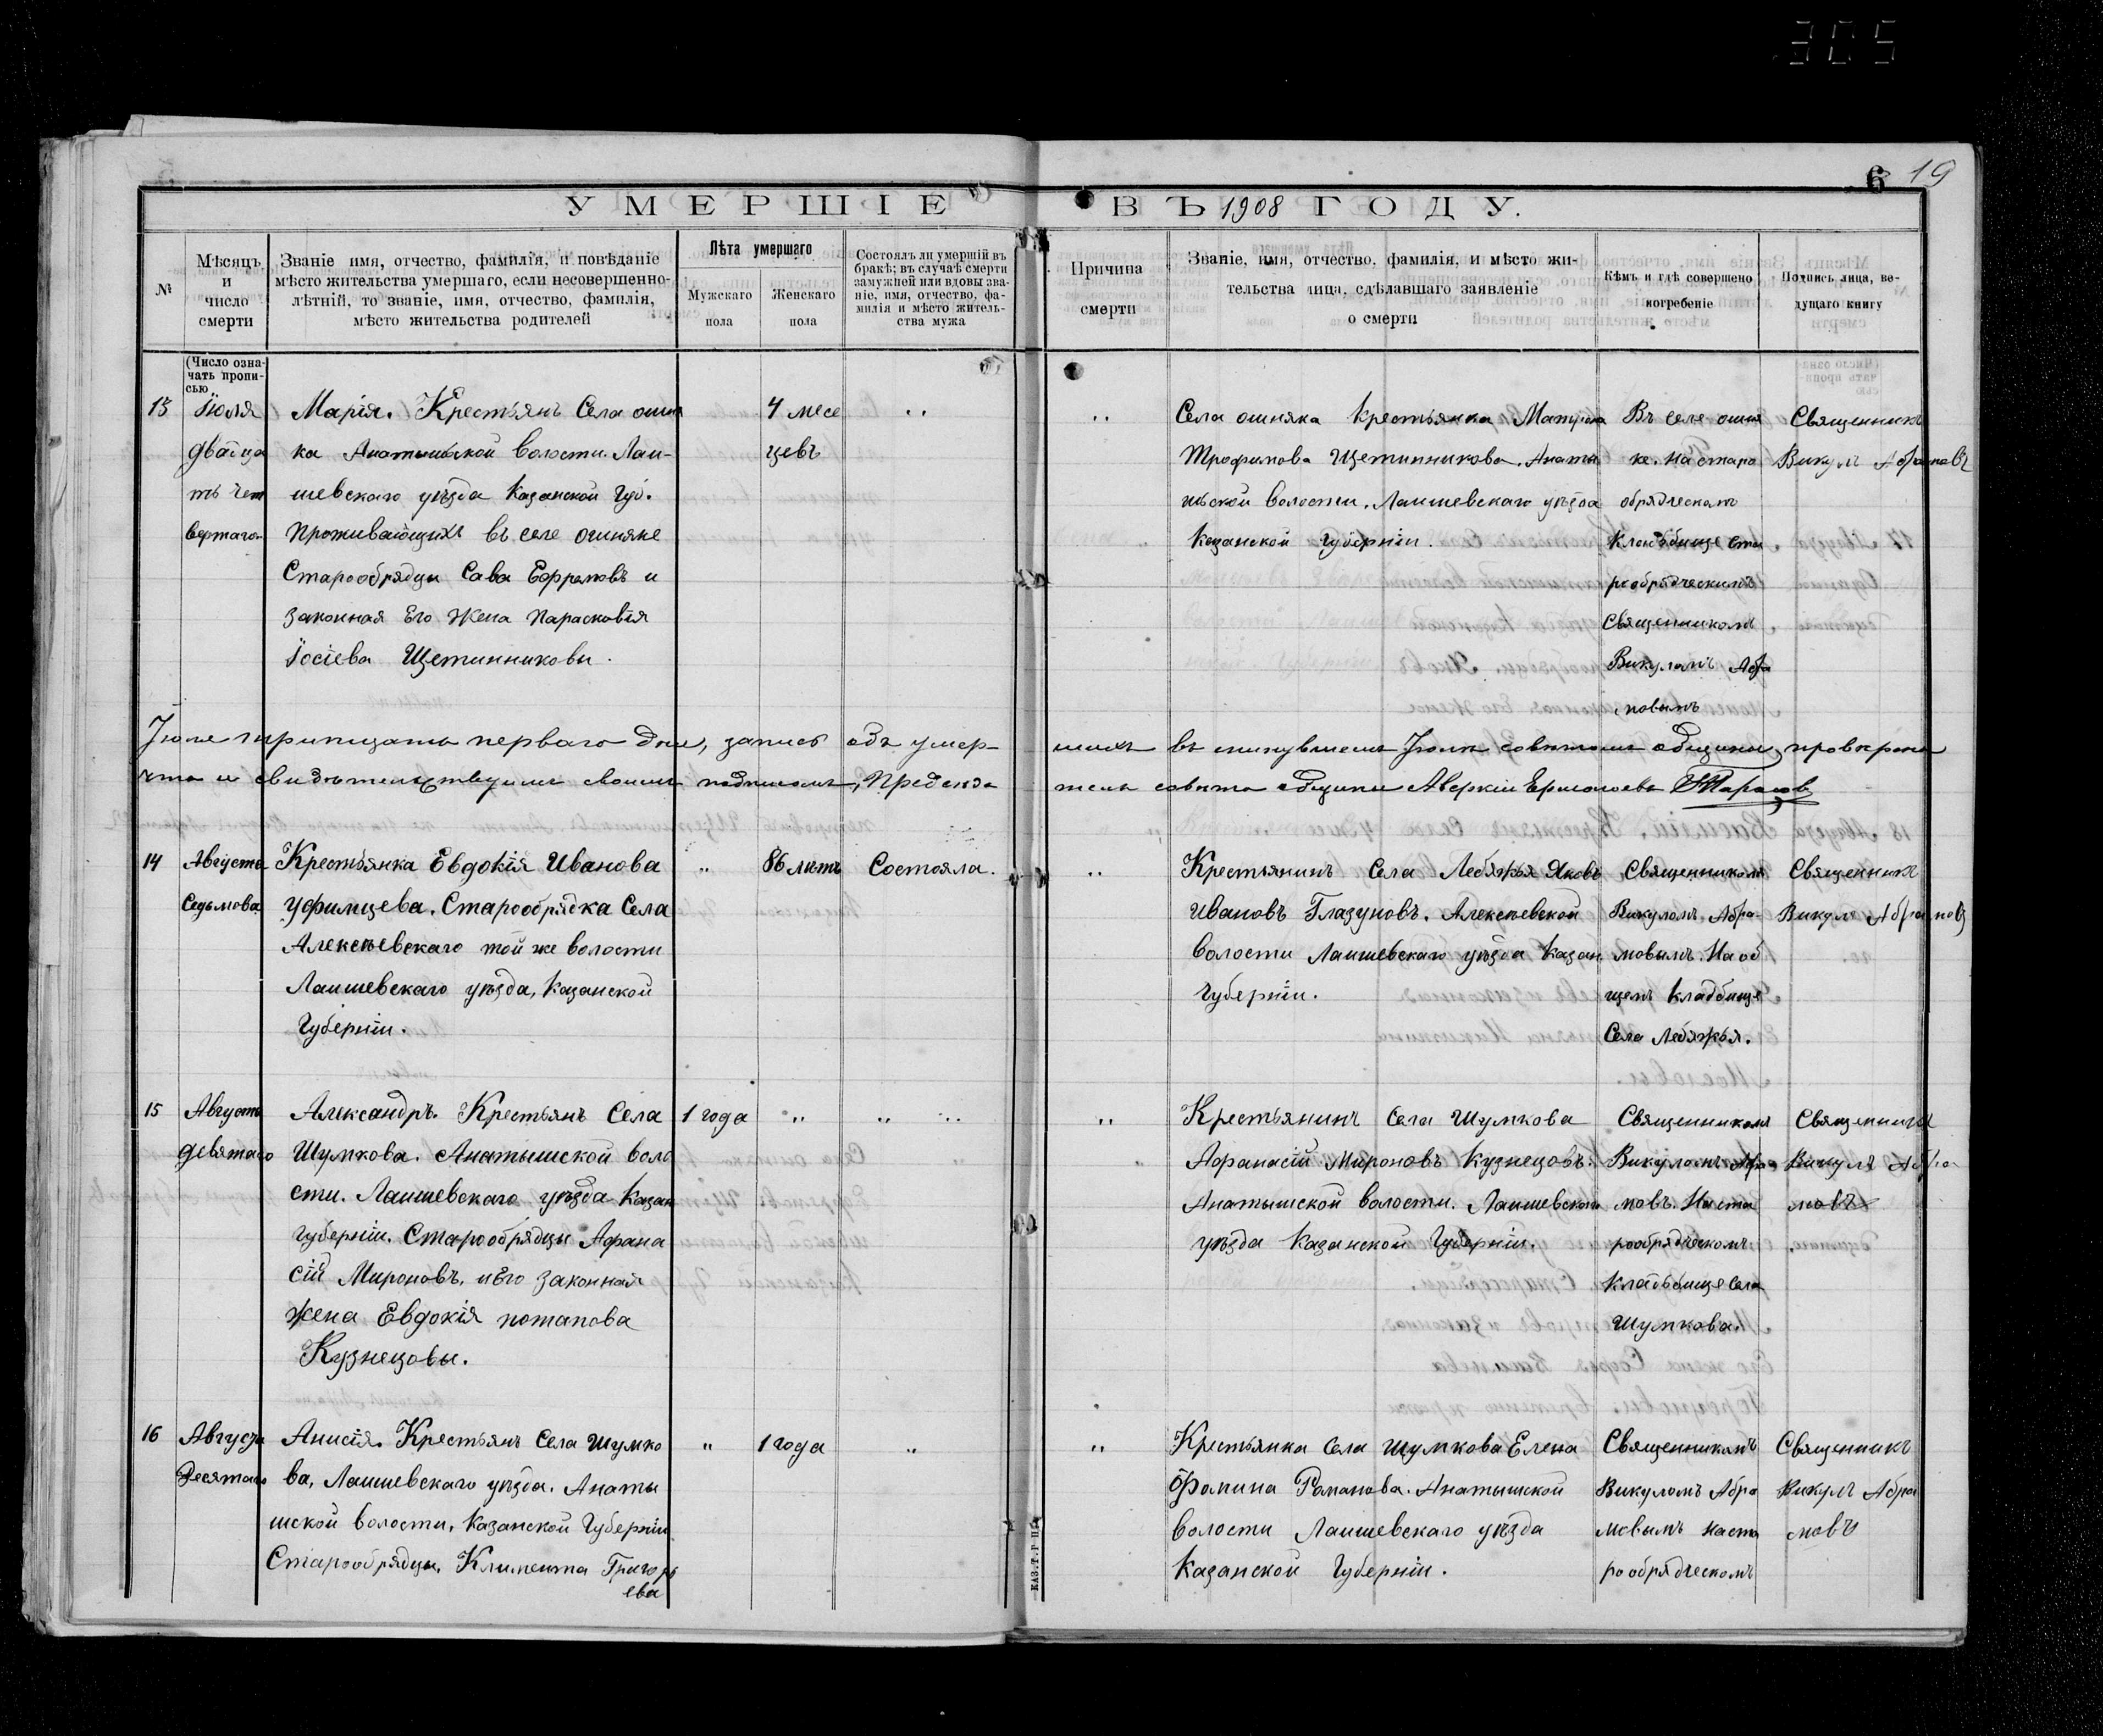 305
6 19
УМЕРШІЕ ВЪ 1908 ГОДУ.
№
Мѣсяцъ
и
число
смерти
Званіе имя, отчество, фамилія, и повѣданіе
мѣсто жительства умершаго, если несовершенно-
лѣтній, то званіе, имя, отчество, фамилія,
мѣсто жительства родителей
Лѣта умершаго
Мужскаго
пола
Женскаго
пола
Состоялъ ли умершій въ
бракѣ; въ случаѣ смерти
замужней или вдовы зва-
ніе, имя, отчество, фа-
милія и мѣсто житель-
ства мужа
Причина
смерти
Званіе, имя, отчество, фамилія, и мѣсто жи-
тельства лица, сдѣлавшаго заявленіе
о смерти
Кѣмъ и гдѣ совершено
погребеніе
Подпись лица, ве-
дущаго книгу
(Число озна-
чать пропи-
сью
13
Іюля
двадца
ть чет
вертаго
Марія. Крестьянъ Села ошня
ка Анатышской волости. Лаи-
шевскаго уѣзда Казанской Губ.
Проживающихъ въ селе ошняке
Старообрядцы Сава Ефремовъ и
законная Его Жена Парасковія
Іосіева Щетинниковы.
4 месе
цевъ
Села ошняка крестьянка Матрена
Трофимова Щетинникова. Анаты
шской волости. Лаишевскаго уѣзда
Казанской Губерніи.
Въ селе ошня
ке. на старо
обрядческомъ
Кладбище Ста
рообрядческимъ
Священникомъ
Викуломъ Абра
мовымъ
Священникъ
Викулъ Абрамовъ
Іюле тритцать перваго дня, запись объ умер-
шихъ въ минувшемъ Іюлѣ совѣтомъ общины провѣрена
что и свидѣтельствуемъ своимъ подписомъ, Председа
тель совѣта общины Аверкій Ермолаевъ Тарасов
14
Августа
Седьмова
Крестьянка Евдокія Иванова
Уфимцева. Старообрядка Села
Алексѣевскаго той же волости
Лаишевскаго уѣзда, Казанской
Губерніи.
86 лѣтъ
Состояла.
Крестьянинъ Села Лебяжья Яковъ
Ивановъ Глазуновъ. Алексѣевской
Волости Лаишевскаго уѣзда Казан
Губерніи.
Священникомъ
Викуломъ Абра-
мовымъ. На об
щемъ кладбище
Села Лебяжья.
Священникъ
Викулъ Абрамовъ
15
Августа
девятаго
Александръ. Крестьянъ Села
Шумкова. Анатышской воло
сти. Лаишевскаго уѣзда Казан
Губерніи. Старообрядцы Афана
сій Мироновъ. иѣго законная
жена Евдокія потапова
Кузнецовы.
1 года
Крестьянинъ Села Шумкова
Афанасій Мироновъ Кузнецовъ.
Анатышской волости. Лаишевскаго
уѣзда Казанской Губерніи.
Священникомъ
Викуломъ Абра
мовъ. На ста
рообрядческомъ
кладбище Села
Шумкова.
Священника
Викулъ Абра
мовъ
16
Августа
Десятаго
Анисія. Крестьянъ Села Шумко
ва, Лаишевскаго уѣзда. Анаты
шской волости, Казанской Губерніи
Старообрядцы, Климента Григорь
ева
1 года
Крестьянка Села Шумкова Елена
Фомина Романова. Анатышской
волости Лаишевскаго уѣзда
Казанской Губерніи.
Священникомъ
Викуломъ Абра
мовымъ наста
рообрядческомъ
Священникъ
Викулъ Абра
мовъ